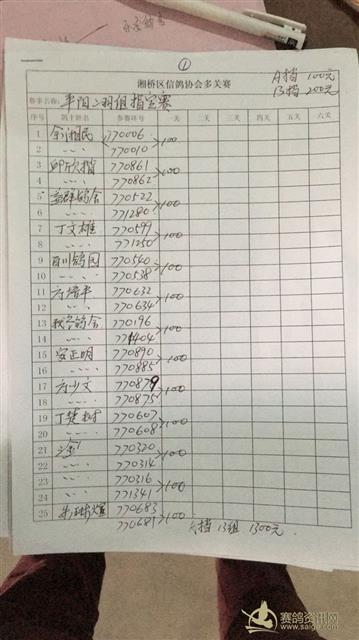 ①
湘桥区信鸽协会多关赛
A挡 100元
B挡 200元
赛事名称: 平阳二羽组指定赛
序号 鸽主姓名 参赛环号 一关 二关 三关 四关 五关 六关
1 余湘民 770006 >100
2 〃〃 770010
3 邱欣楷 770861 >100
4 〃〃 770862
5 益群鸽舍 770522 >100
6 〃〃 771280
7 丁文雄 770599 >100
8 〃〃 771250
9 百川鸽园 770540 >100
10 〃〃 770538
11 770632 >100
12 〃〃 770634
13 770196 >100
14 〃〃 771404
15 安正明 770890 >100
16 〃〃 770885
17 少文 770879 >100
18 〃〃 770875
19 丁楚树 770607 >100
20 〃〃 770608
21 770320 >100
22 〃〃 770314
23 〃〃 770316 >100
24 〃〃 771341
25 770683 >100
770681
A挡 13组 1300元
赛鸽资讯网
www.saige.com